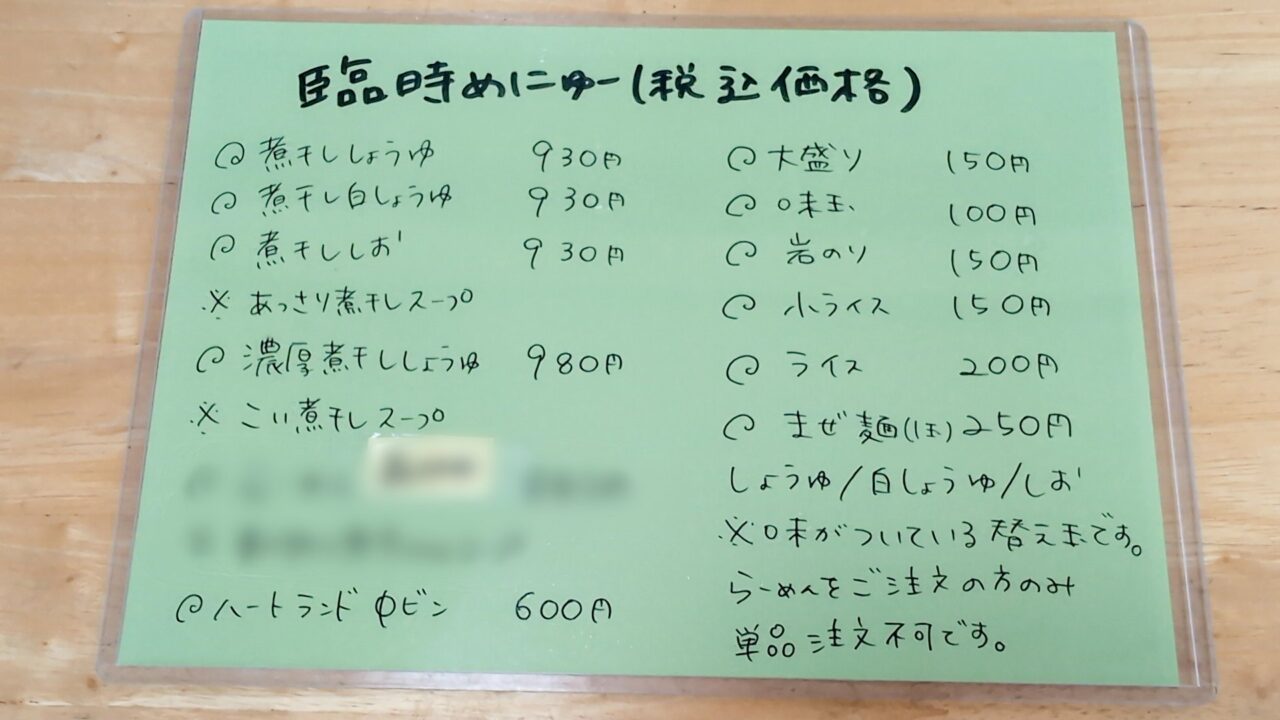 臨時めにゅー(税込価格)
煮干ししょうゆ 930円
煮干し白しょうゆ 930円
煮干ししお 930円
※ あっさり煮干しスープ
濃厚煮干ししょうゆ 980円
※ こい煮干しスープ
ハートランド中ビン 600円
大盛り 150円
味玉 100円
岩のり 150円
小ライス 150円
ライス 200円
まぜ麺(玉) 250円
しょうゆ/白しょうゆ/しお
※味がついている替え玉です。
らーめんをご注文の方のみ
単品注文不可です。